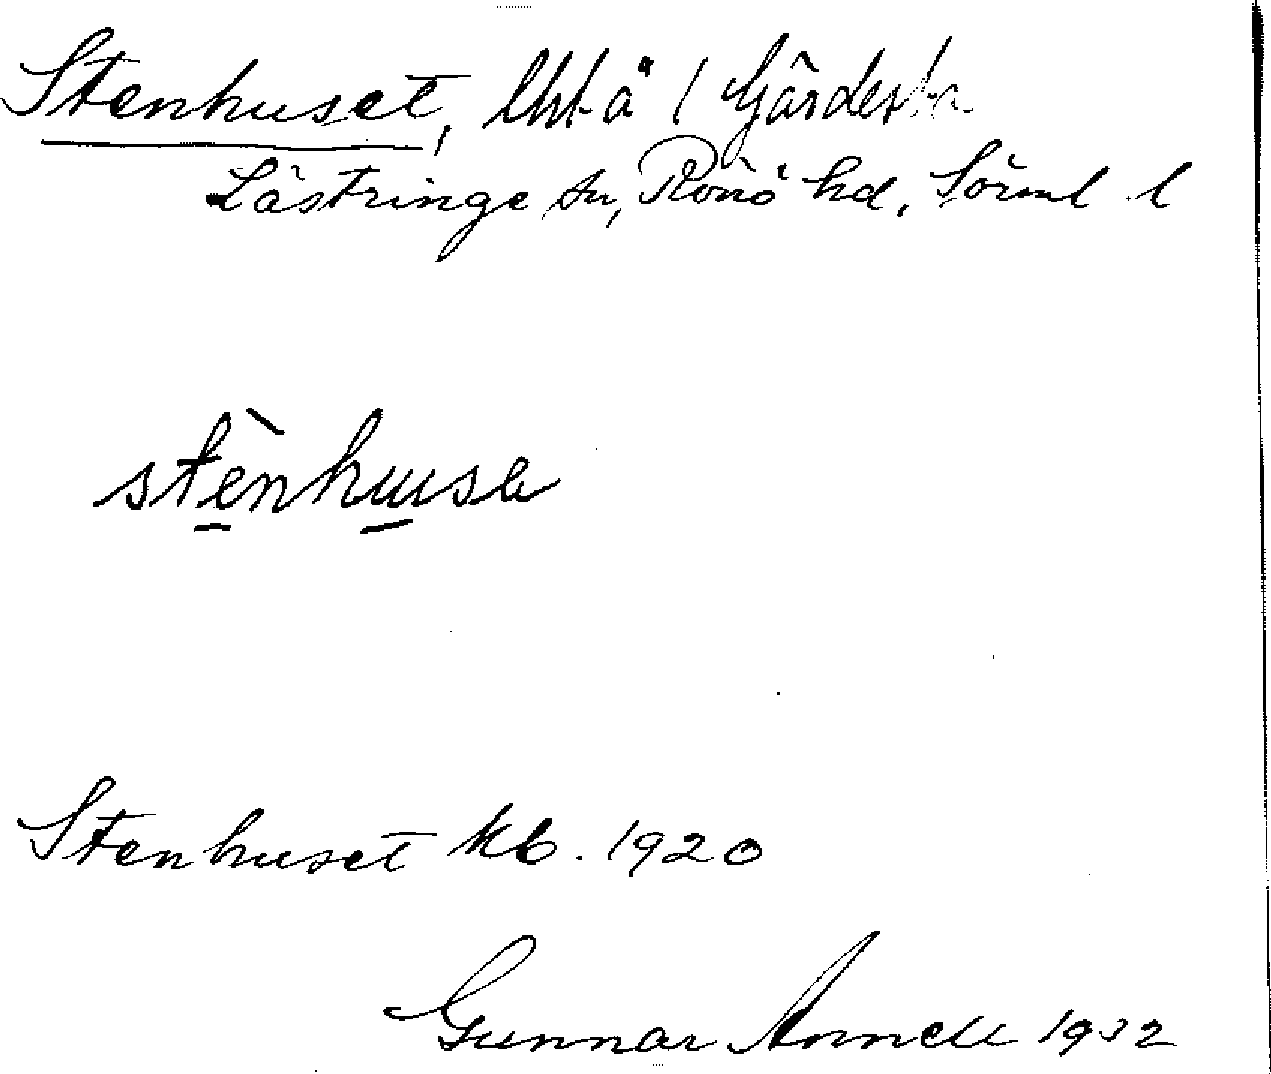 Stenhuset, lht å 1 Gärdesta
Lästringe sn, Rönö hd. Sörml l
stènhusa
Stenhuset kb. 1920
Gunnar Annell 1932